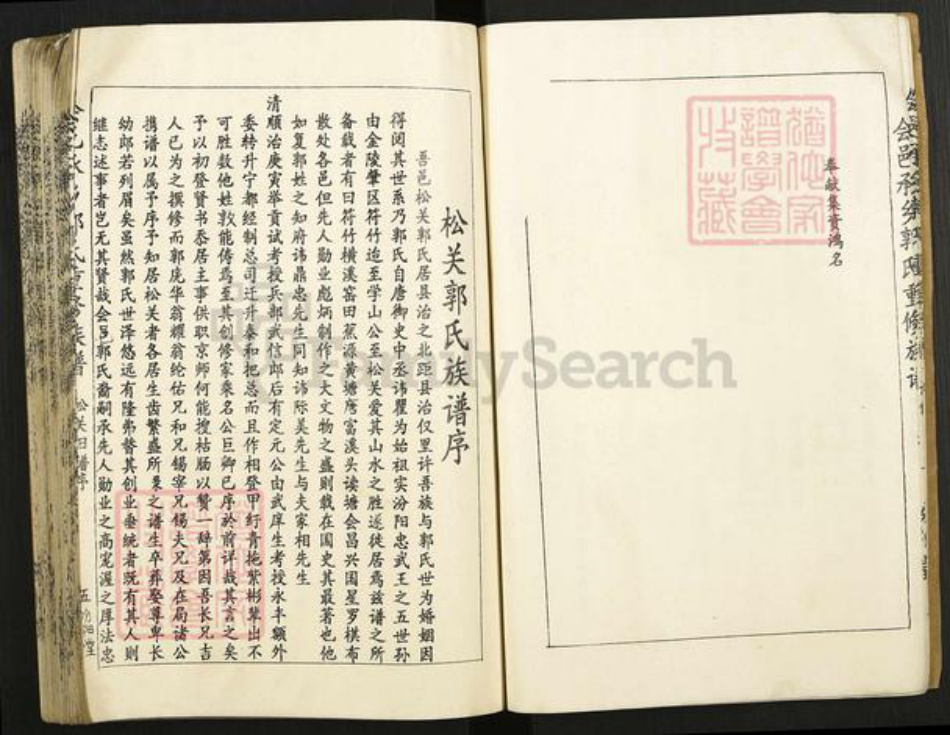 奉献集资鸿名
松关郭氏族谱序
吾邑松关郭氏居县治之北距县治仅里许吾族与郭氏世为婚姻因
得阅其世系乃郭氏自唐御史中丞讳瞿为始祖实汾阳忠武王之五世孙
由金陵肇区符竹迨至学山公至松关爱其山水之胜遂徒居焉兹谱之所
备载者有曰符竹横溪窑田蕉源黄塘 富溪头读塘会昌兴国星罗棋布
散处各邑但先人勋业彪炳制作之大文物之盛则载在国史其最著也他
如复郭姓之知府讳鼎忠先生同知讳际美先生与夫家相先生
清顺治庚寅举贡试考授兵部武信郎后有定元公由武庠生考授永丰额外
委转升宁都经制总司迁升泰和把总而且作相登甲纡青拖紫彬辈出不
可胜数他姓孰能俦焉至其创修家乘名公巨卿已序於前详哉其言之矣
予以初登贤书忝居主事供职京师何能搜枯肠以赞一辞第因吾长兄吉
人已为之撰修而郭庞华翁耀翁纶佑兄和兄锡宰兄锡夫兄及在局诸公
携谱以属予序予知居松关者各居生齿繁盛所秉之谱生卒葬娶尊卑长
幼郎若列眉矣虽然郭氏世泽悠远有隆弗替其创业垂统者既有其人则
继志述事者岂无其贤哉会邑郭氏裔嗣承先人勋业之高宠渥之厚法忠
松关旧谱序
五
FamilySearch